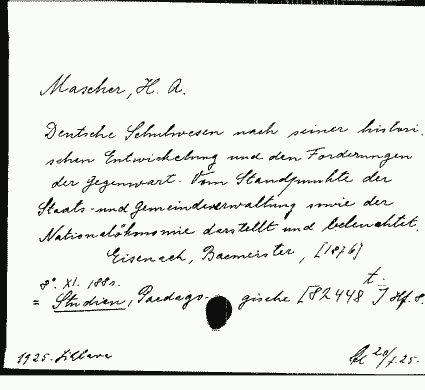 Mascher, H. A.
Deutsche Schulwesen nach seiner histori-
schen Entwickelung und den Forderungen
der Gegenwart. Vom Standpunkte der
Staats- und Gemeindeverwaltung sowie der
Nationalökonomie darstellt und beleuchtet.
Eisenach, Bacmeister, [1876]
8° XI. 188 S.
= Studien, Paedagogische [82448 t.] Hf. 8.
1925. 20/7.25.